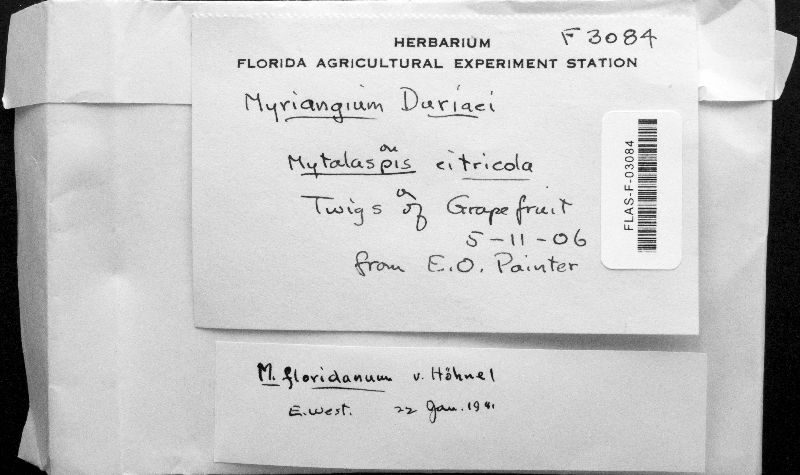 F 3084
HERBARIUM
FLORIDA AGRICULTURAL EXPERIMENT STATION
Myriangium Duriaei
on
Mytalaspis citricola
on
Twigs of Grapefruit
5-11-06
from E.O. Painter
FLAS-F-03084
M. floridanum v. Höhnel
E. West. 22 Jan.